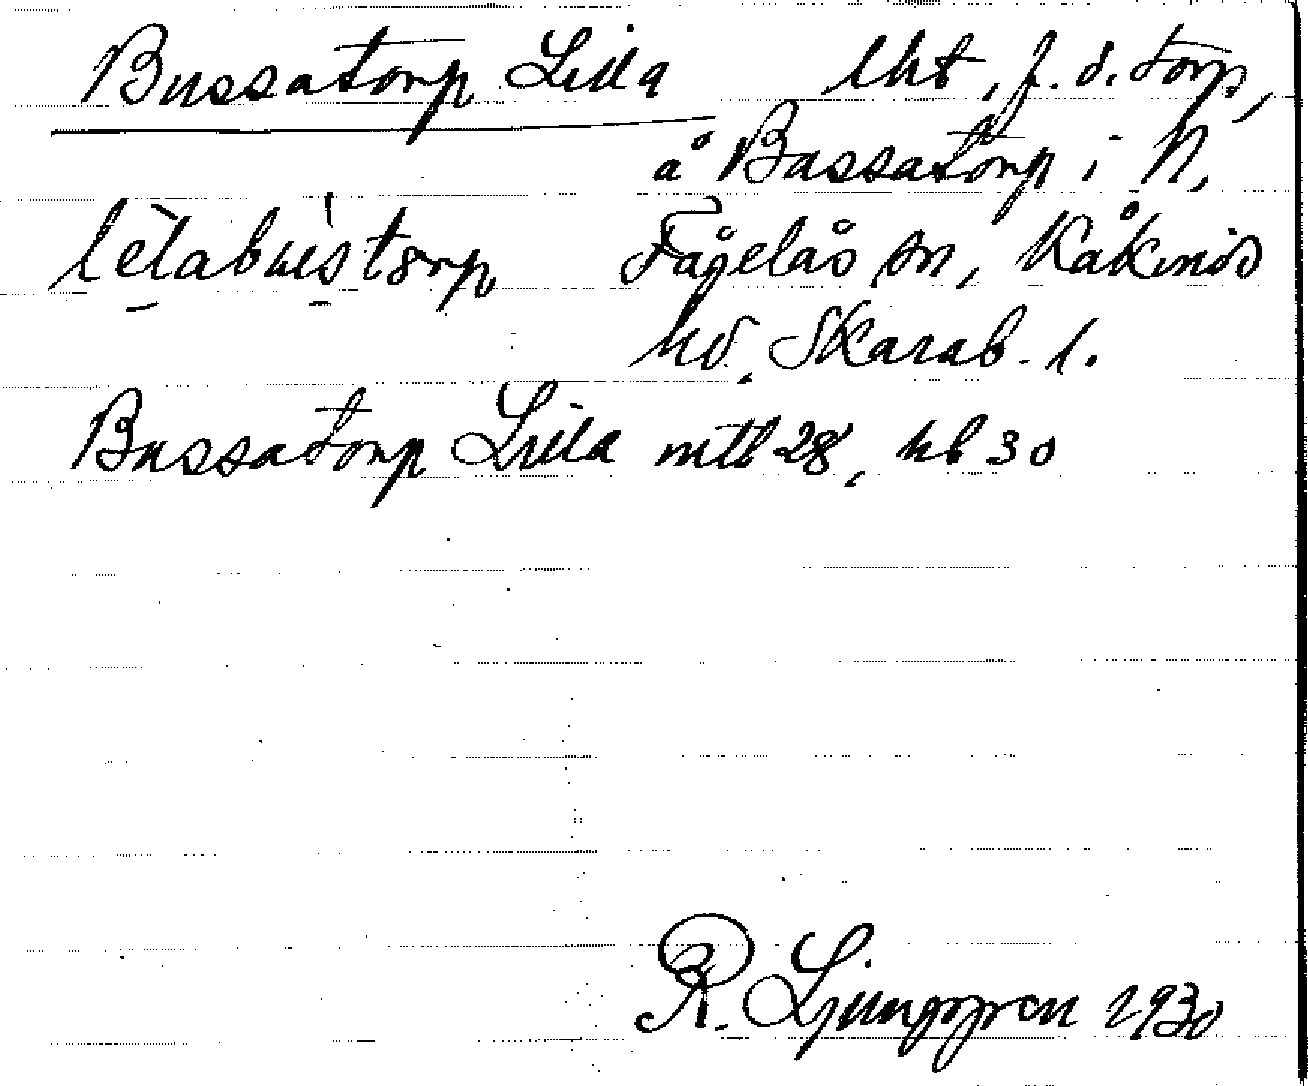 Bussatorp Lilla lht, f.d. torp,
å Bussatorp i N.
lètabustorp Fågelås sn, Kåkinds
hd. Skarab. l.
Bussatorp Lilla mtl 28, hb 30
R. Ljunggren 1930